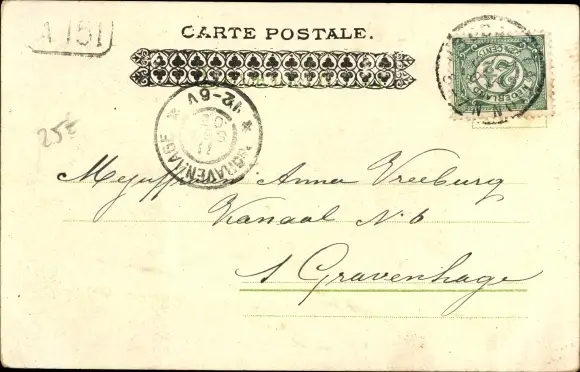 A 151
CARTE POSTALE.
2½
CENT
NEDERLAND
25E
'SGRAVENHAGE
12-6V
Mejuffrouw Anna Vreeburg
Kanaal N. 6
s Gravenhage